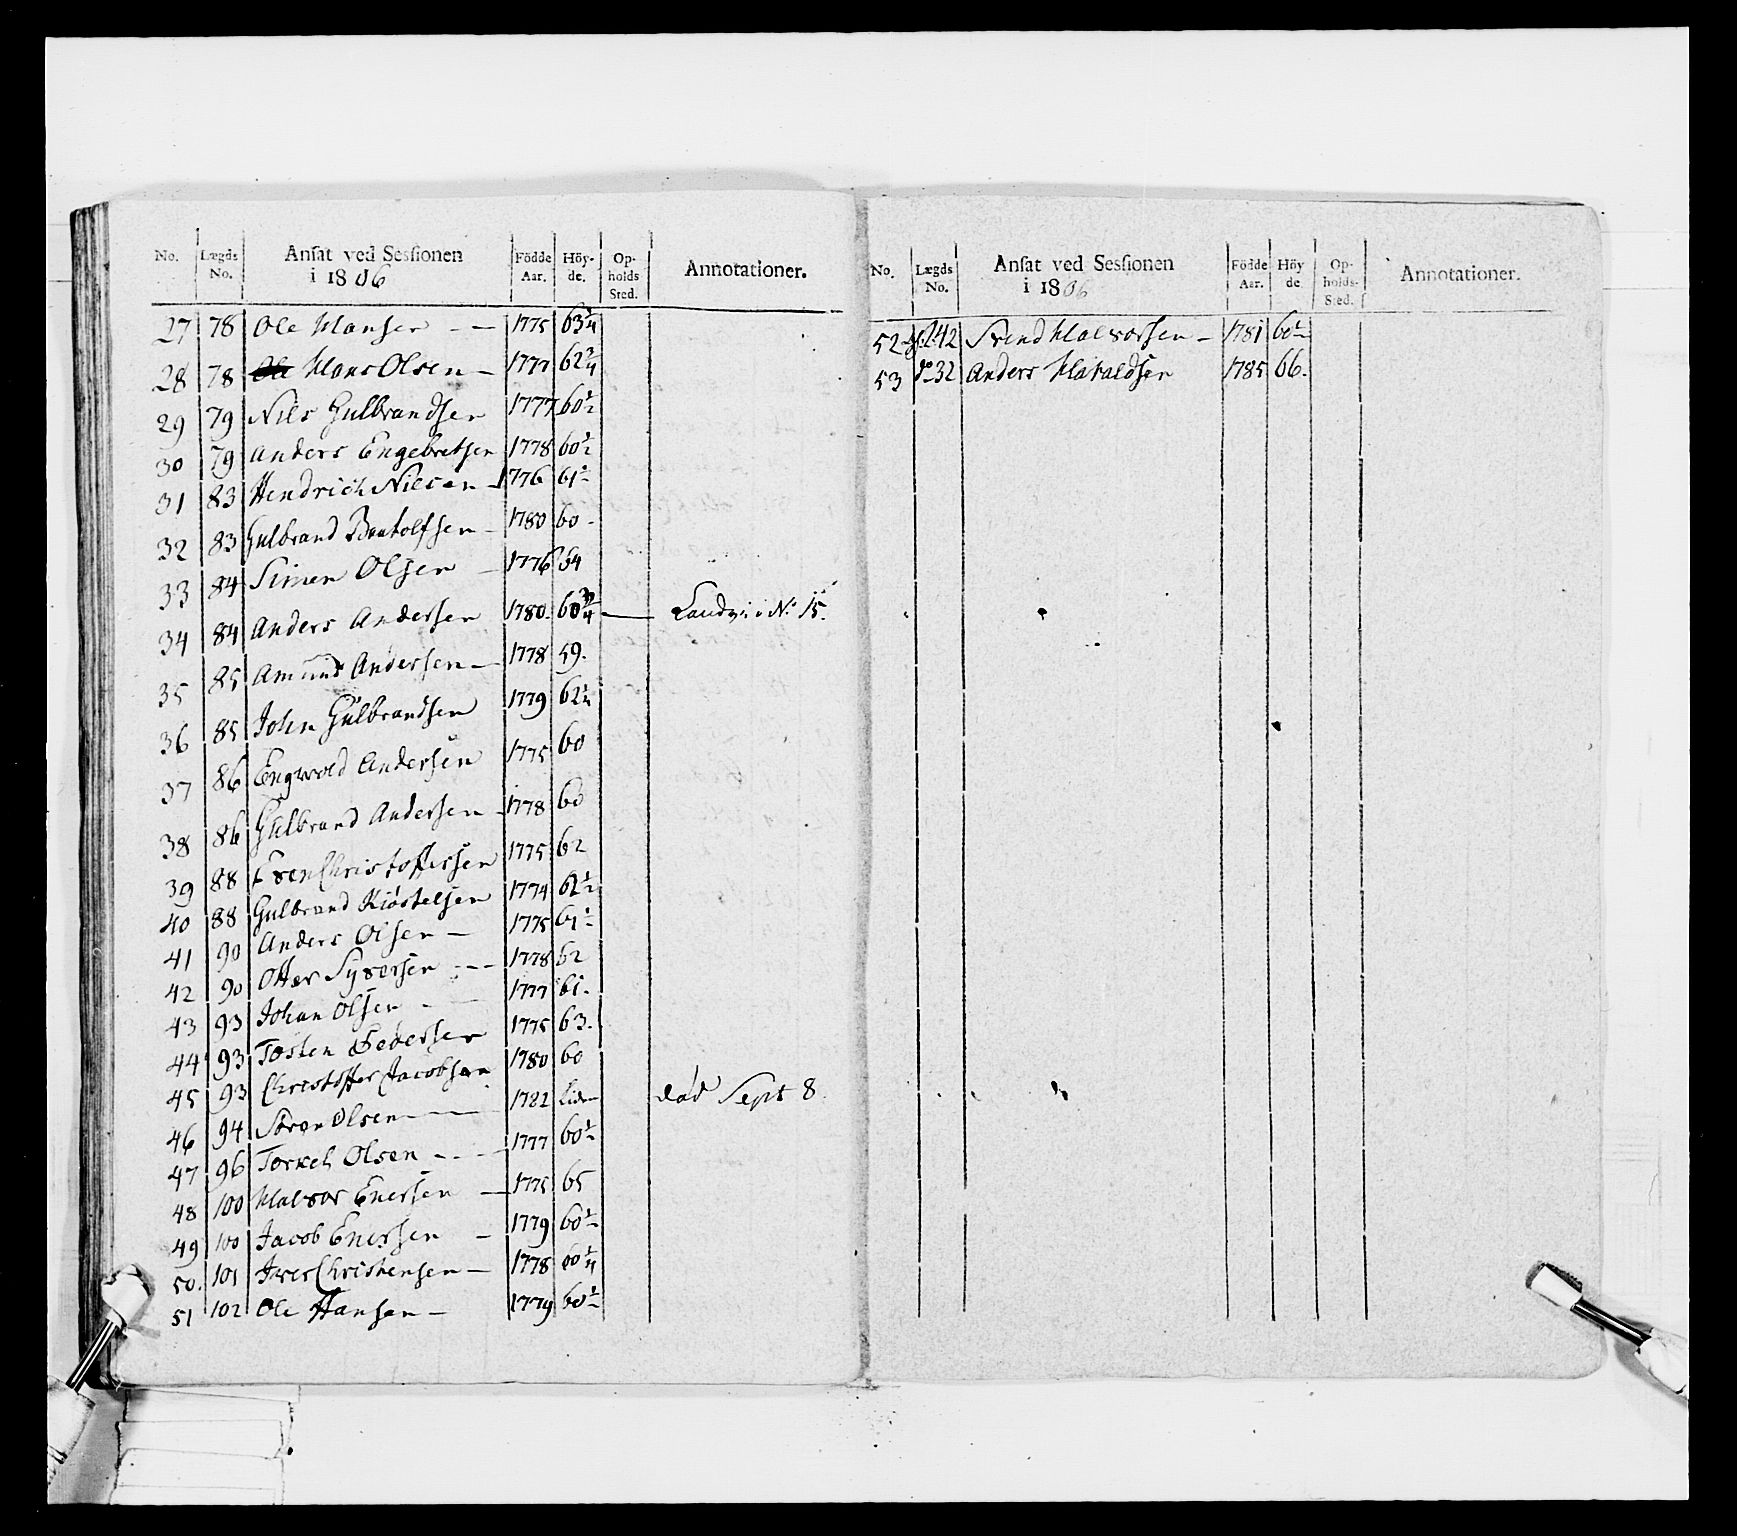 No. Lægds No. Ansat ved Sessionen i 1806 Födde Aar. Höy- de. Op- holds Sted. Annotationer.
27 78 Ole Hansen - - 1775 63 1/4
28 78 Hans Olsen - 1777 62 3/4
29 79 Nils Gulbrandsen 1777 60 1/2
30 79 Anders Engebretsen 1778 60 1/2
31 83 Hendrich Nilsen - 1776 61 1/2
32 83 Gulbrand - 1780 60 -
33 84 Simen Olsen - 1776 64
34 84 Anders Andersen 1780. 60 3/4 — No. 15.
35 85 Amund Andersen - 1778 59.
36 85 John Gulbrandsen 1779 62 1/4
37 86 Engwold Andersen 1775 60
38 86 Gulbrand Andersen - 1778 60
39 88 Even Christoffersen 1775 62
40 88 Gulbrand Kiöstelsen 1774 62 1/2
41 90 Anders Olsen - 1775 61 1/2
42 90 Otter Syversen - - - 1778 62
43 93 Johan Olsen - - 1777 61.
44 93 Tosten Pedersen 1775 63.
45 93 Christoffer Jacobsen 1780 60
46 94 Sören Olsen - 1782 död Sept 8
47 96 Torkel Olsen - - - - 1777 60 1/2
48 100 Halvor Enersen - 1775 65
49 100 Jacob Enersen - 1779 60 1/2
50. 101 Iver Christensen - 1778 60 1/4
51 102 Ole Hansen - 1779 60 1/2
No. Lægds No. Ansat ved Sessionen i 1806 Födde Aar. Höy de. Op- holds- Sted. Annotationer.
52 42 Svend Halvorsen - 1781 60 1/2
53 do 32 Anders Haraldsen 1785 66.